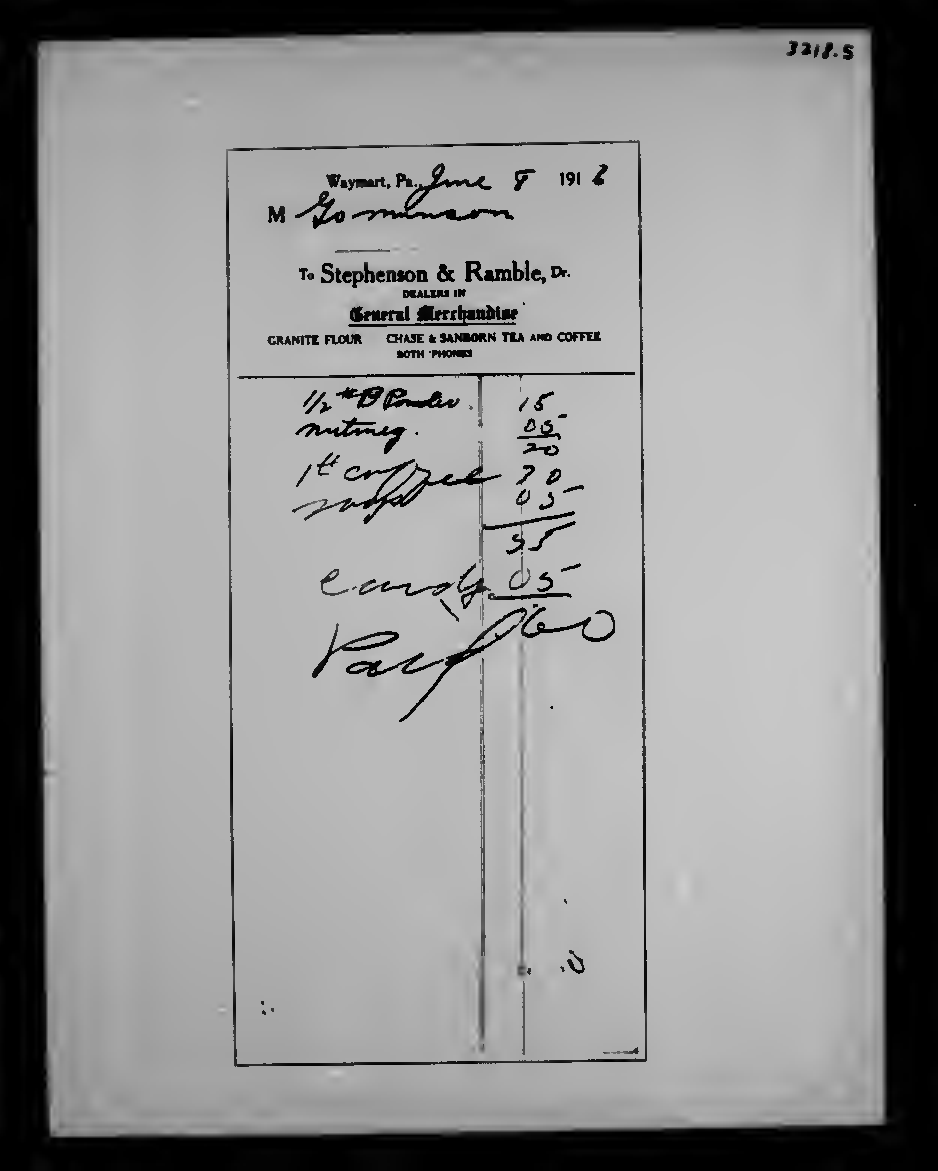 3218.5
Waymart, Pa., June 8 191
M Go munson
To Stephenson & Ramble, Dr.
DEALERS IN
General Merchandise
GRANITE FLOUR CHASE & SANBORN TEA AND COFFEE
BOTH 'PHONES
1/2 # B Powder. 15
nutmeg. 05
20
1 # coffee 30
soap 05
55
Candy. 05
60
Paid